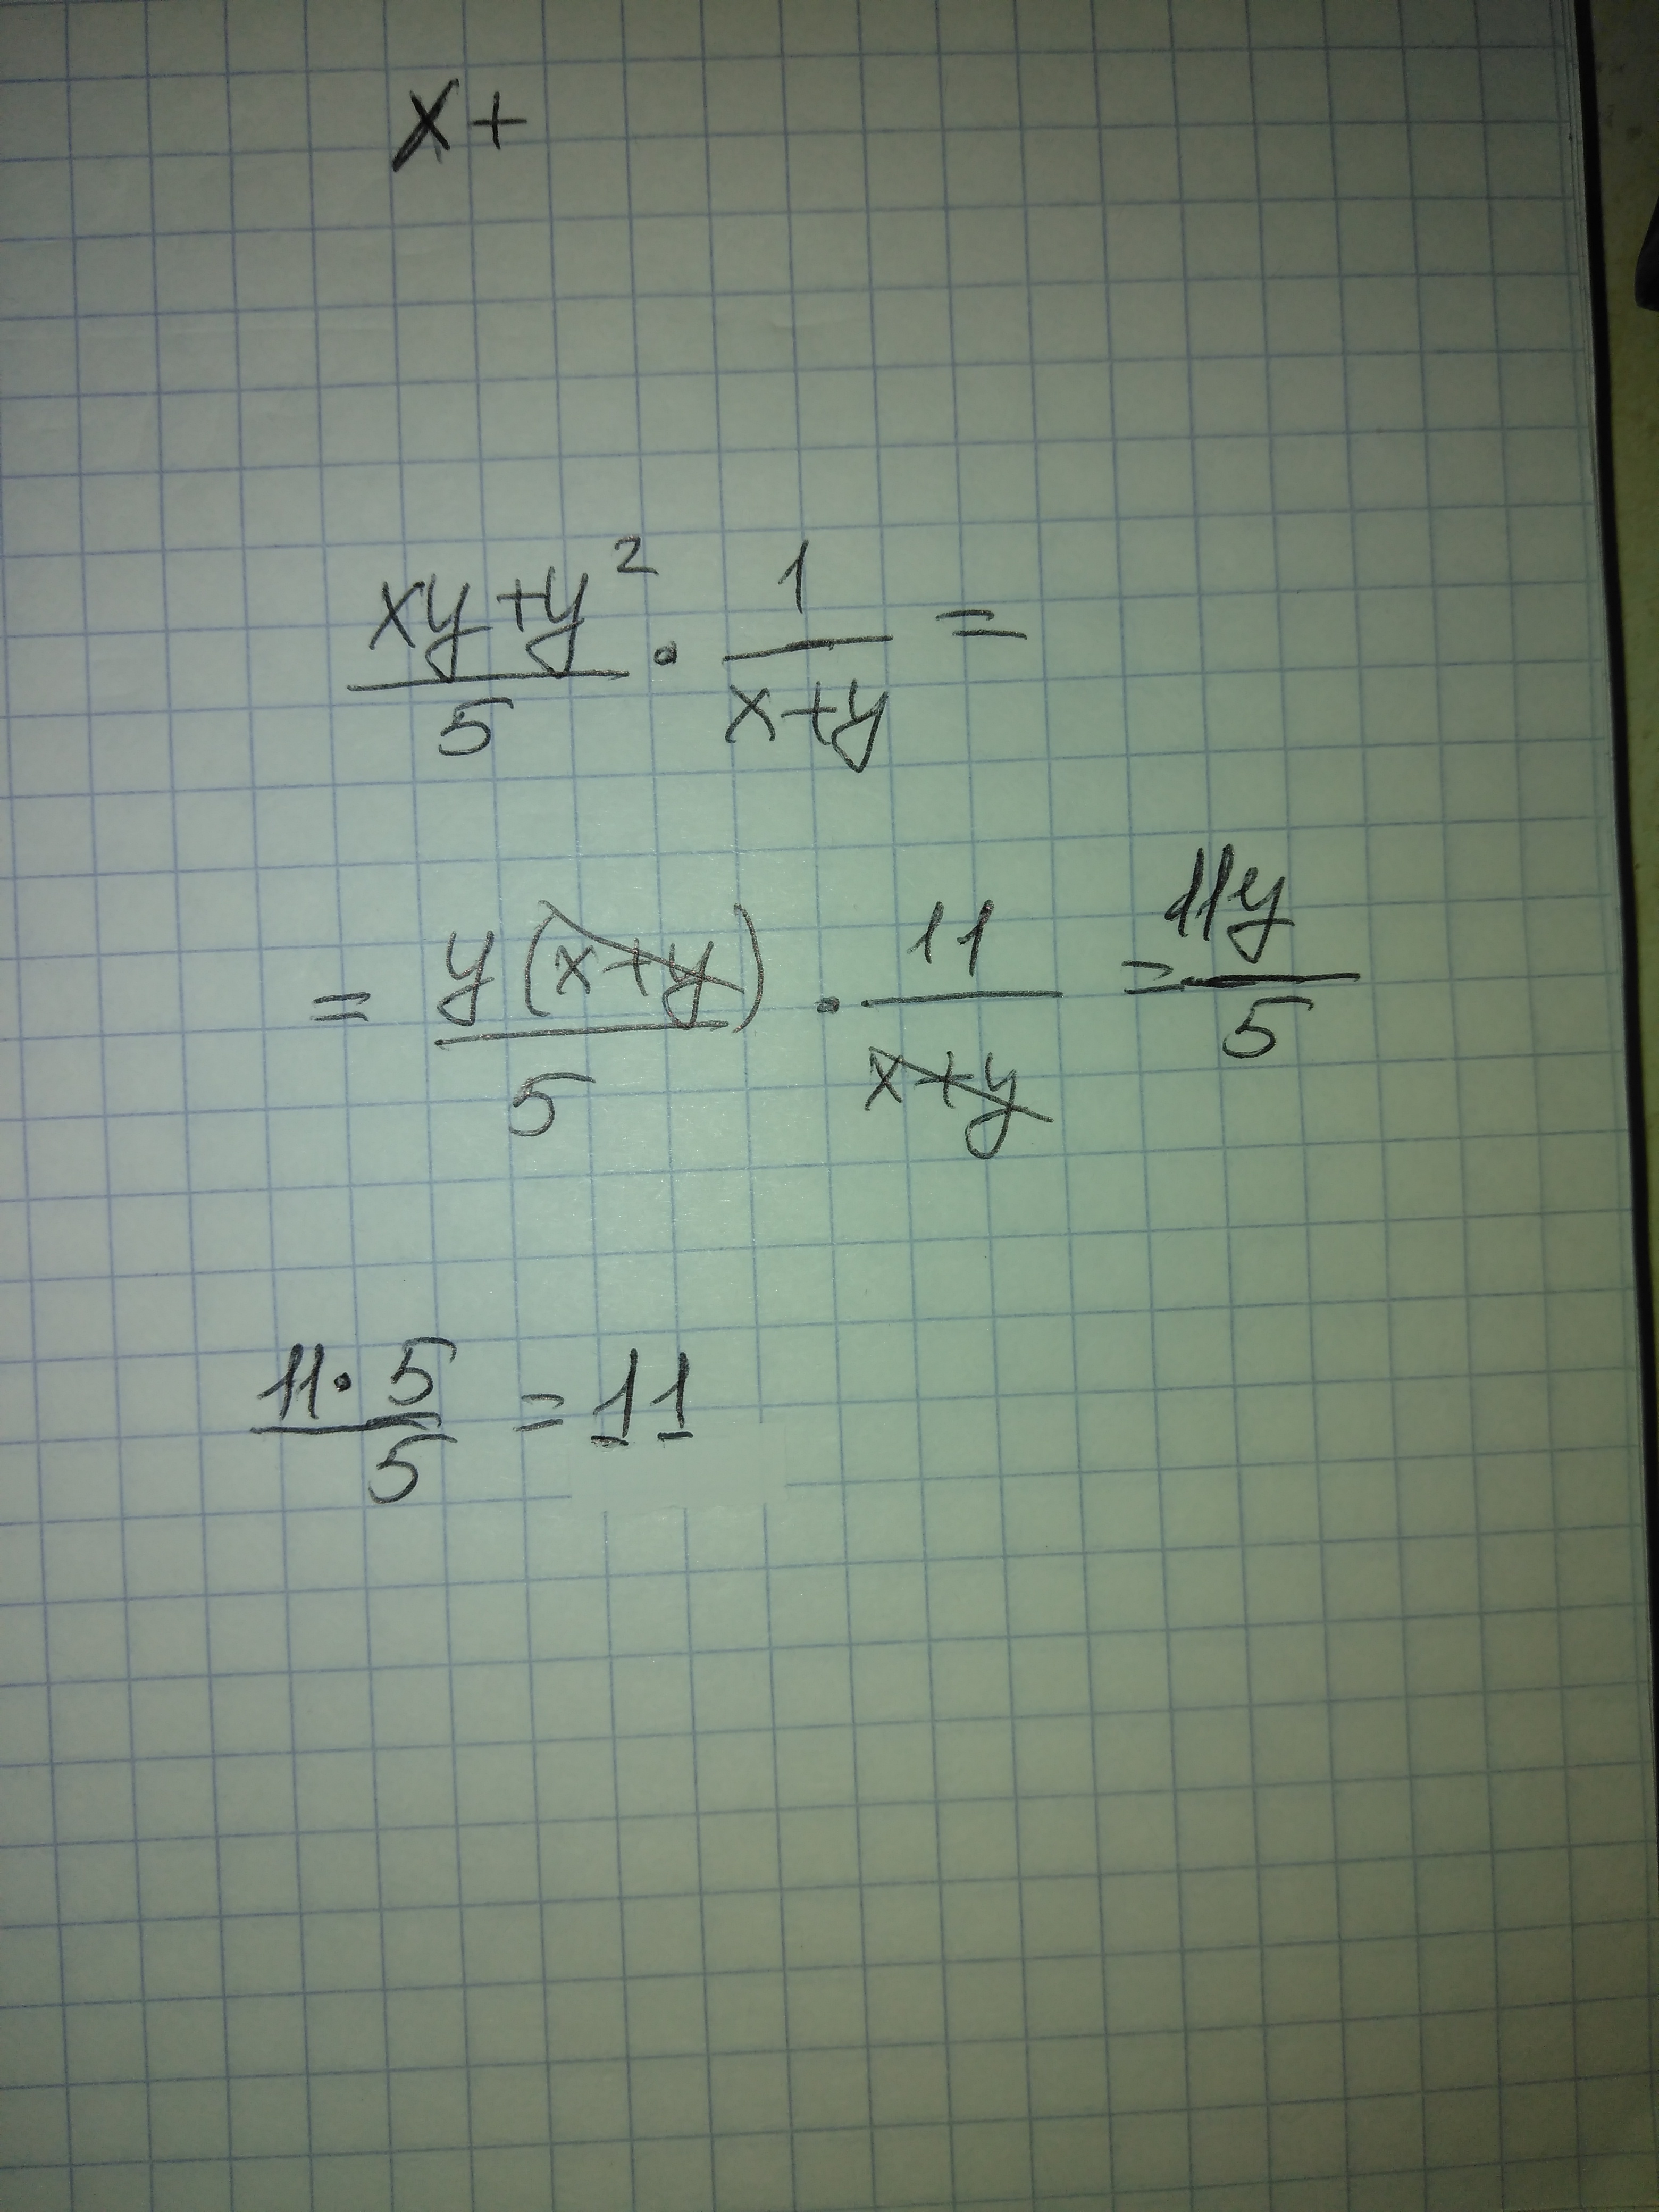 x+
(xy+y²)/5 · 1/(x+y) =
= y(x+y)/5 · 11/(x+y) = 11y/5
11·5/5 = 11